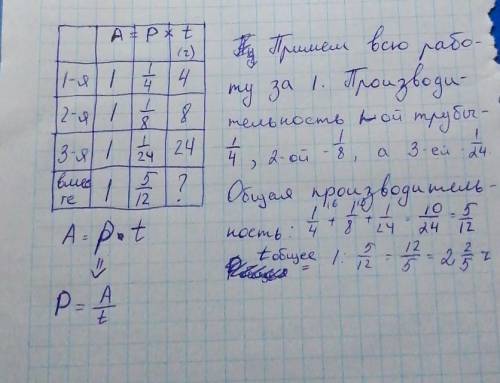 A = P × t
(ч)
1-я 1 1/4 4
2-я 1 1/8 8
3-я 1 1/24 24
вмес
те 1 5/12 ?
A = p • t
⇓
P = A/t
Примем всю рабо-
ту за 1. Производи-
тельность 1-ой трубы-
1/4, 2-ой - 1/8, а 3-ей - 1/24
Общая производитель-
ность: 1/4 + 1/8 + 1/24 = 10/24 = 5/12
t общее = 1 : 5/12 = 12/5 = 2 2/5 ч